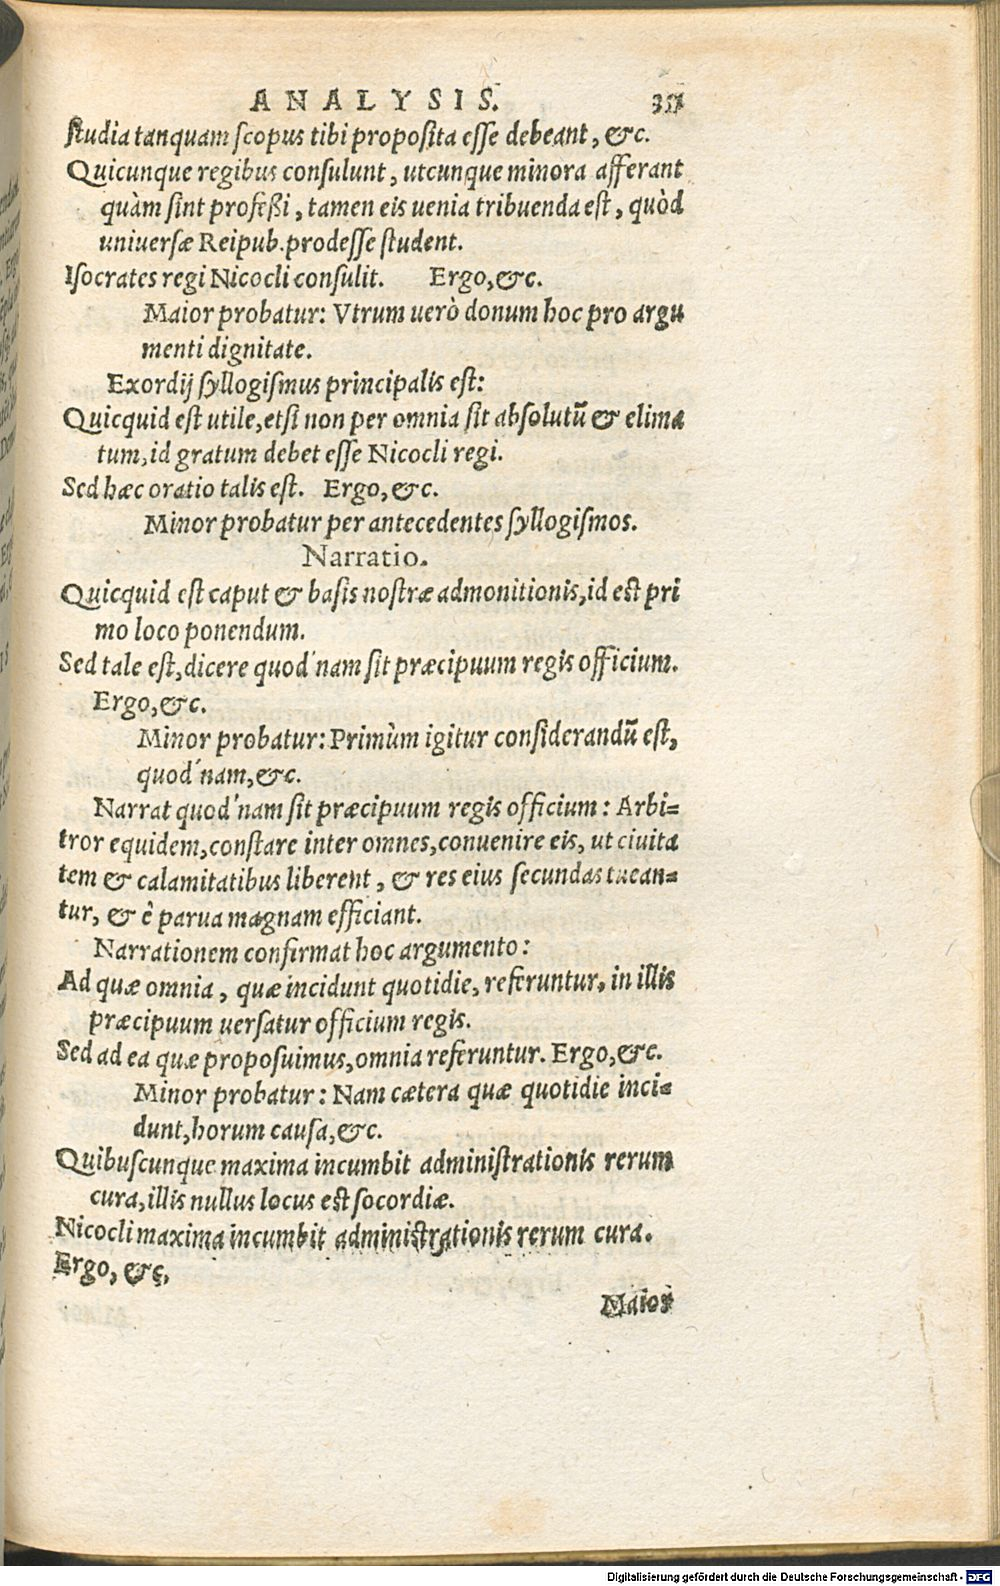 ANALYSIS.
studia tanquam scopus tibi proposita esse debeant, &c.
Quicunque regibus consulunt, utcunque minora afferant
quàm sint professi, tamen eis uenia tribuenda est, quòd
uniuersæ Reipub. prodesse student.
Isocrates regi Nicocli consulit. Ergo, &c.
Maior probatur: Vtrum uerò donum hoc pro argu
menti dignitate.
Exordij syllogismus principalis est:
Quicquid est utile, etsi non per omnia sit absolutũ & elima
tum, id gratum debet esse Nicocli regi.
Sed hæc oratio talis est. Ergo, &c.
Minor probatur per antecedentes syllogismos.
Narratio.
Quicquid est caput & basis nostræ admonitionis, id est pri
mo loco ponendum.
Sed tale est, dicere quod'nam sit præcipuum regis officium.
Ergo, &c.
Minor probatur: Primùm igitur considerandũ est,
quod'nam, &c.
Narrat quod'nam sit præcipuum regis officium: Arbi=
tror equidem, constare inter omnes, conuenire eis, ut ciuita
tem & calamitatibus liberent, & res eius secundas tuean=
tur, & è parua magnam efficiant.
Narrationem confirmat hoc argumento:
Ad quæ omnia, quæ incidunt quotidie, referuntur, in illis
præcipuum uersatur officium regis.
Sed ad ea quæ proposuimus, omnia referuntur. Ergo, &c.
Minor probatur: Nam cætera quæ quotidie inci=
dunt, horum causa, &c.
Quibuscunque maxima incumbit administrationis rerum
cura, illis nullus locus est socordiæ.
Nicocli maxima incumbit administrationis rerum cura.
Ergo, &c.
Maior
Digitalisierung gefördert durch die Deutsche Forschungsgemeinschaft - DFG